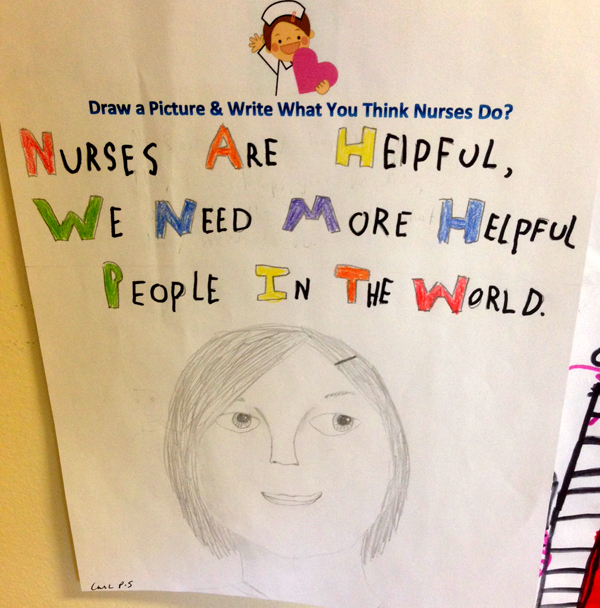 Draw a Picture & Write What You Think Nurses Do?
NURSES ARE HElPFUL,
WE NEED MORE HELPFUL
PEOPLE IN THE WORLD.